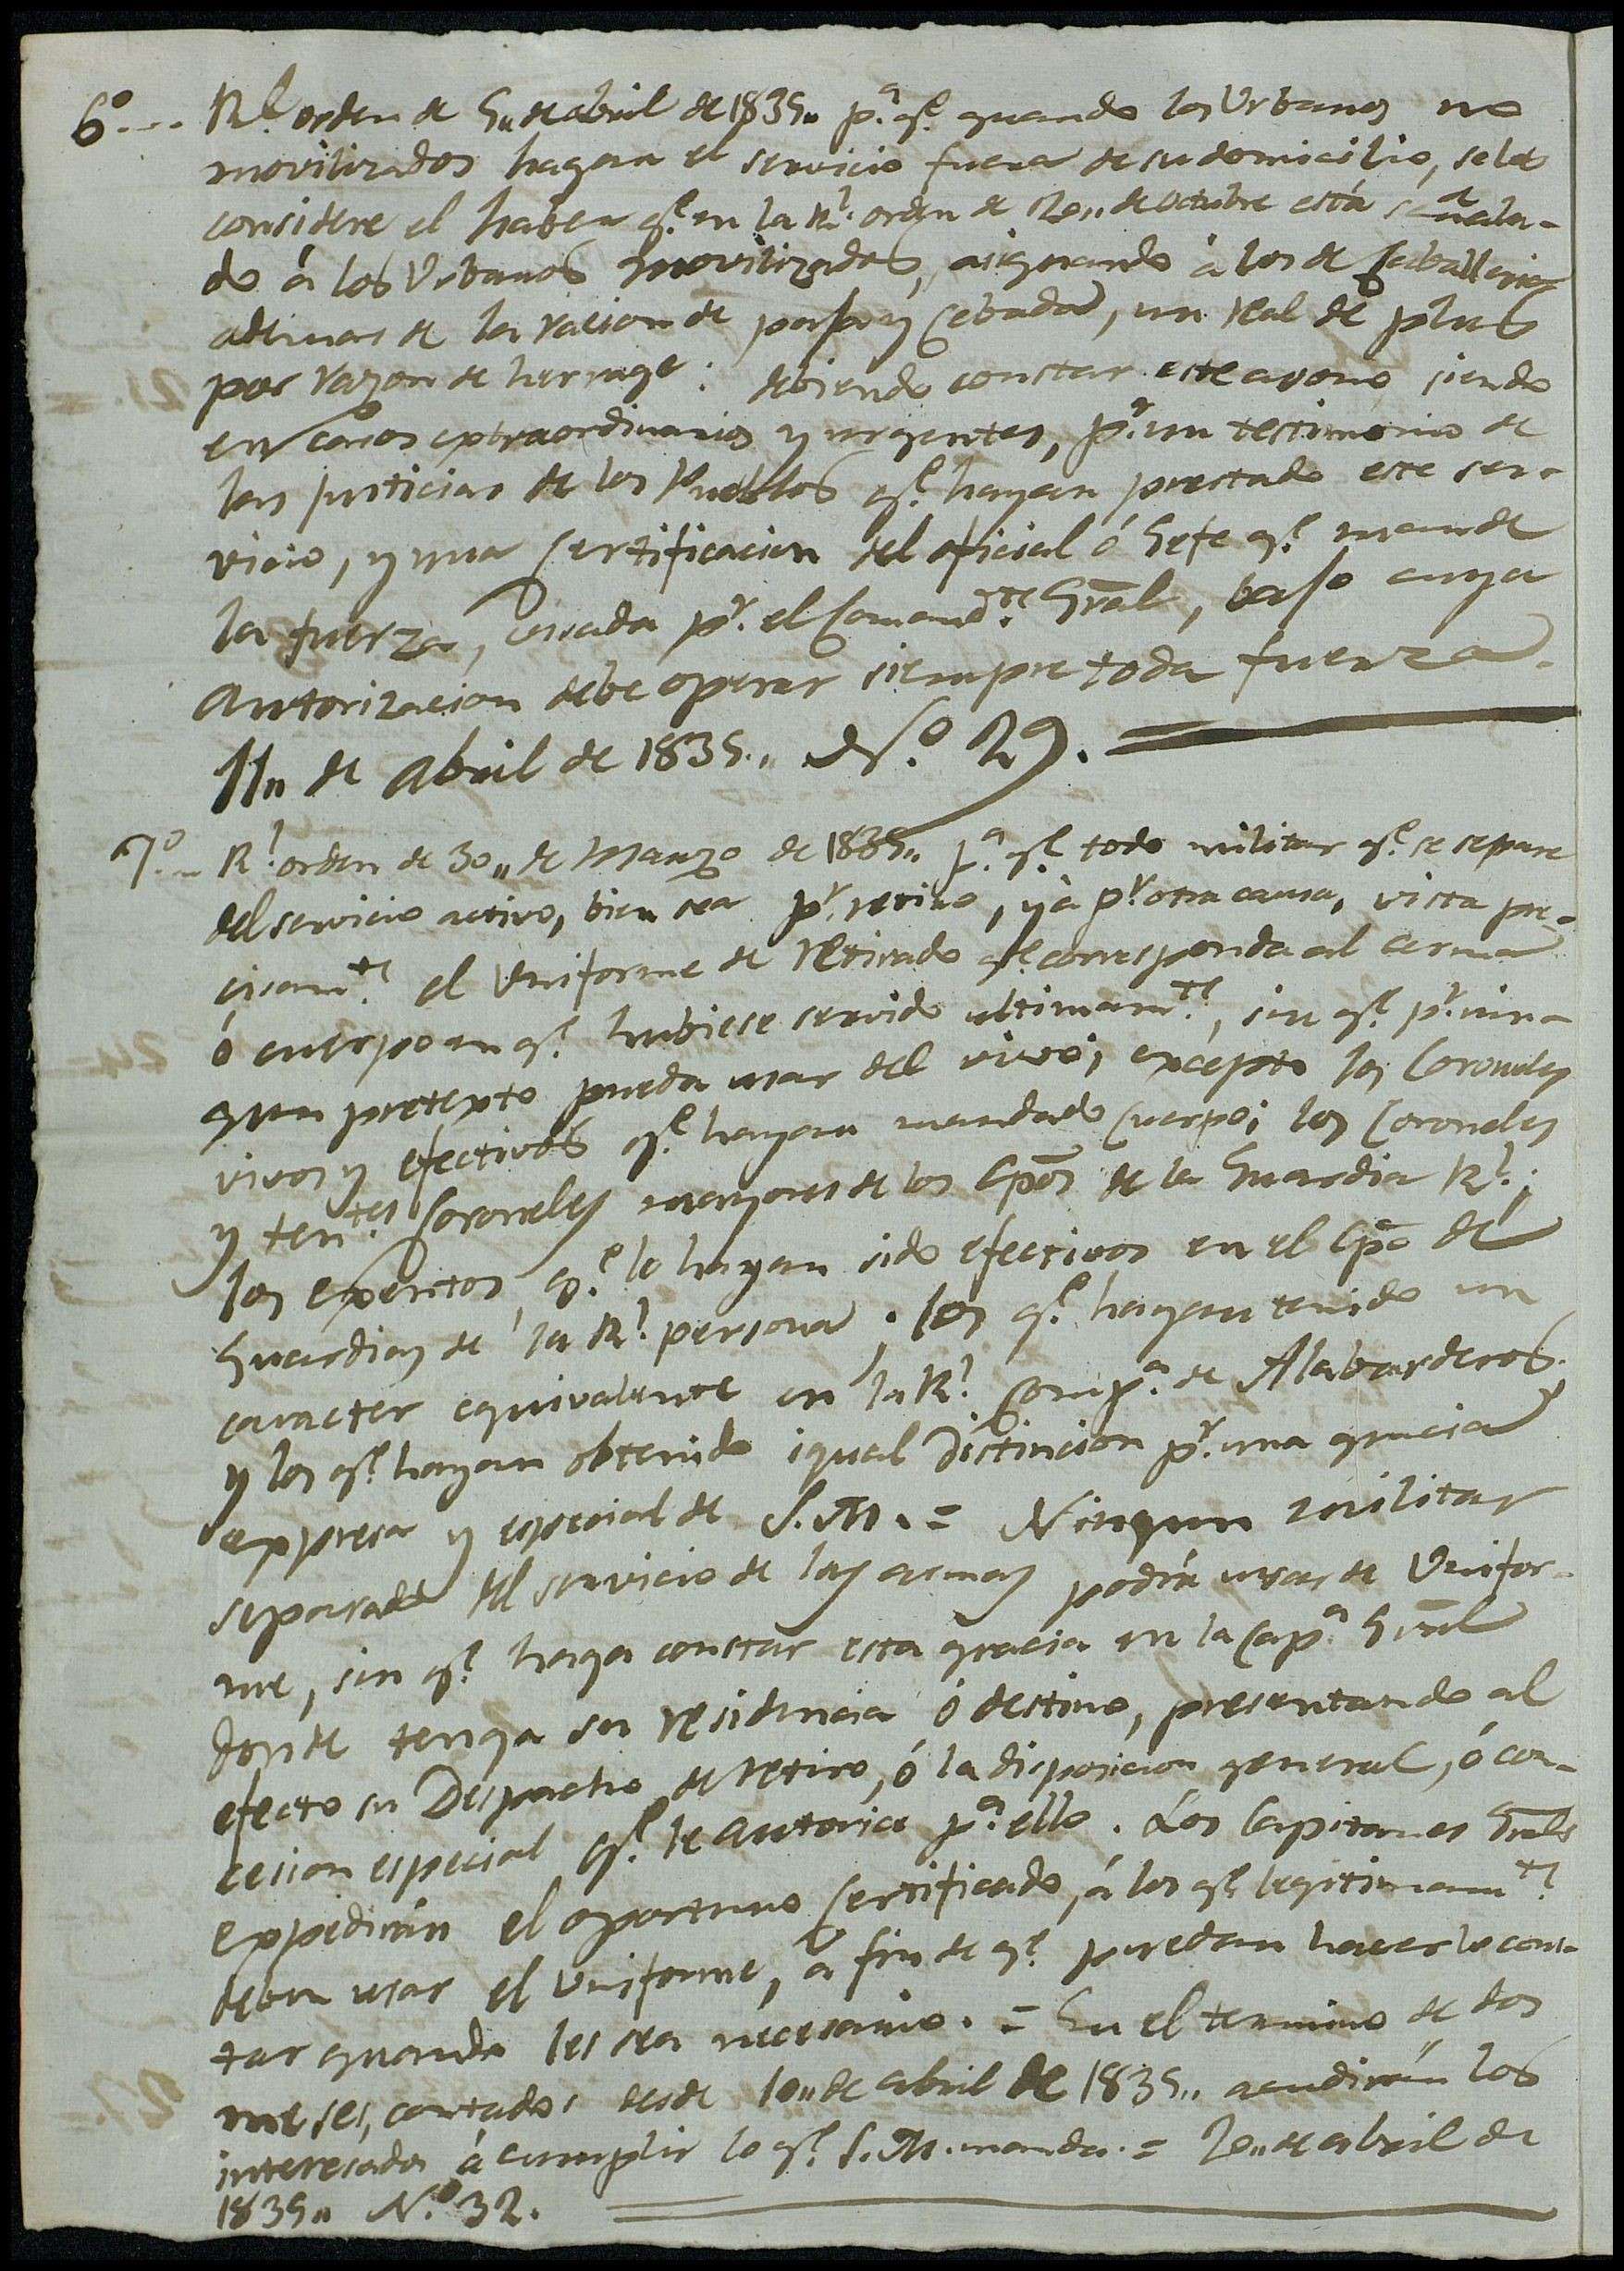 6º... Rl. orden de 5,, de abril de 1835,, pª. qe. quando los Urbanos no
movilizados hagan el servicio fuera de su domicilio, se les
considere el haber qe. en la Rl. orden de 20,, de octubre está señala-
do á los Urbanos movilizados, asignando á los de Caballeria
ademas de la racion de paja y Cebada, un real de plus
por razon de herrage: debiendo constar este avono, siendo
en casos extraordinarios y urgentes, pr. un testimonio de
las justicias de los Pueblos qe. hayan prestado este ser-
vicio, y una Certificacion del oficial ó Gefe qe. mande
la fuerza, visada pr. el Comandte. Gral, bajo cuya
autorizacion debe operar siempre toda fuerza.
11,, de Abril de 1835,, Nº. 29.
7º... Rl. orden de 30,, de Marzo de 1835,, pª. qe. todo militar qe. se separe
del servicio activo, bien sea pr. retiro, yá pr. otra causa, vista pre-
cisamte. el Uniforme de Retirado qe. corresponda al arma
ó cuerpo en qe. hubiese servido ultimamte., sin qe. pr. nin-
gun pretexto pueda usar del vivo; excepto los Coroneles
vivos y efectivos qe. hayan mandado Cuerpo; los Coroneles
y tentes. Coroneles mayores de los Cpos. de la Guardia Rl.;
los Exentos, qe. lo hayan sido efectivos en el Cpo. de
Guardias de la Rl. persona; los qe. hayan tenido un
caracter equivalente en la Rl. Compª. de Alabarderos,
y los qe. hayan obtenido igual Distincion pr. una gracia
expresa y especial de S.M. = Ningun militar
separado del servicio de las armas podrá usar de Unifor-
me, sin qe. haga constar esta gracia en la Capª. Gral
donde tenga su residencia ó destino, presentando al
efecto su Despacho de retiro, ó la disposicion general, ó con-
cesion especial qe. le autorice pª. ello. Los Capitanes Grals
expedirán el oportuno Certificado, á los qe. legitimamte.
deban usar el Uniforme, á fin de qe. puedan hacerlo cons-
tar quando les sea necesario. = En el termino de dos
meses, contados desde 10,, de abril de 1835,, acudirán los
interesados á cumplir lo qe. S.M. manda. = 20,, de abril de
1835,, N.º 32.